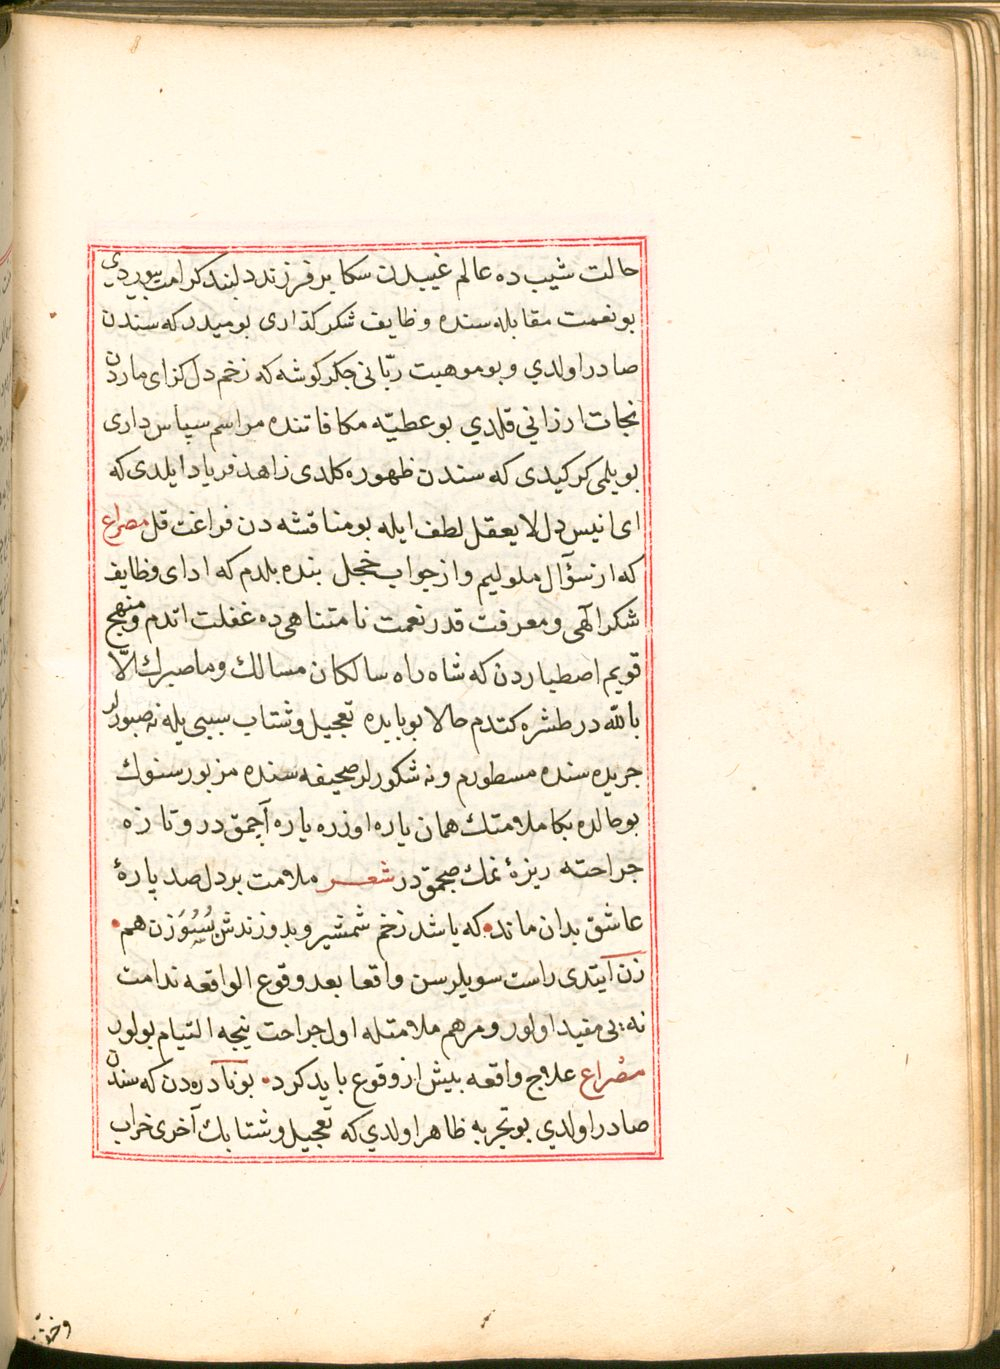 حالت شیب ده عالم غیبدن سکا بر فرزند دلبند کرامت بیوردی
بو نعمت مقابله سنده وظایف شکرکذاری بومیدر که سندن
صادر اولدي و بو موهبت ربّانی جکرکوشه که زخم دل کزای ماردن
نجات ارزانی قلدي بو عطیّه مکافاتنده مراسم سپاس داری
بویلمی کرکیدی که سندن ظهوره کلدی زاهد فریاد ایلدی که
ای انیس دل لا یعقل لطف ایله بو مناقشه دن فراغت قل مصراع
که از سؤآل ملولیم و از جواب خجل بنده بلدم که ادای وظایف
شکر آلهی و معرفت قدر نعمت نا متناهی ده غفلت اتدم و منهج
قویم اصطباردن که شاه راه سالکان مسالك وما صبرك الّا
بالله در طشره کتدم حالا بو بابده تعجیل و شتاب سببی یله نه صبورلر
جریده سنده مسطورم و نه شکورلر صحیفه سنده مزبور سنوك
بو حالده بکا ملامتك همان یاره اوزره یاره آچمق در و تازه
جراحته ریزهٔ نمك صچمق در شعر ملامت بر دل صد پارهٔ
عاشق بدان ماند • که باشد زخم شمشیر و بدوزندش بسوزن هم •
زن آیتدی راست سویلرسن واقعا بعد وقوع الواقعه ندامت
نه یی مفید اولور و مرهم ملامتله اول جراحت نیجه التیام بولور
مصراع علاج واقعه بیش از وقوع باید کرد • بو نادره دن که سندن
صادر اولدي بو تجربه ظاهر اولدي که تعجیل و شتابك آخری خراب